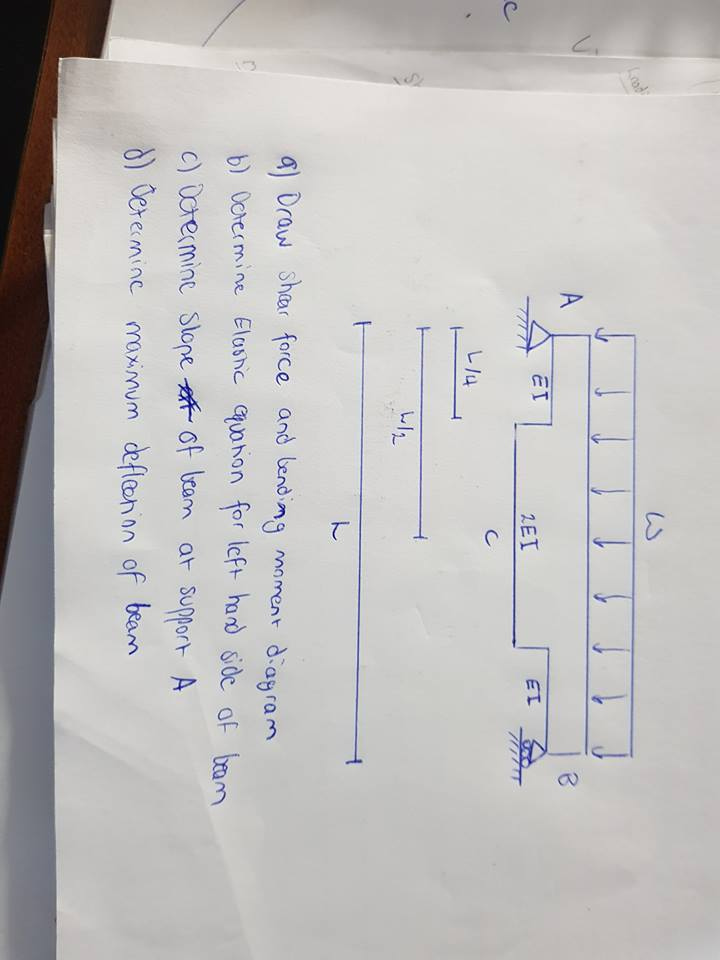 C
W
A
B
EI
2EI
EI
C
L/4
L/2
L
a) Draw shear force and bending moment diagram
b) Determine Elastic equation for left hand side of beam
c) Determine Slope of beam at support A
d) Determine maximum deflection of beam